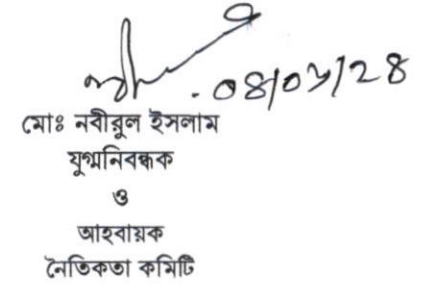 ০৪/০৩/২৪
মোঃ নবীরুল ইসলাম
যুগ্মনিবন্ধক
ও
আহবায়ক
নৈতিকতা কমিটি